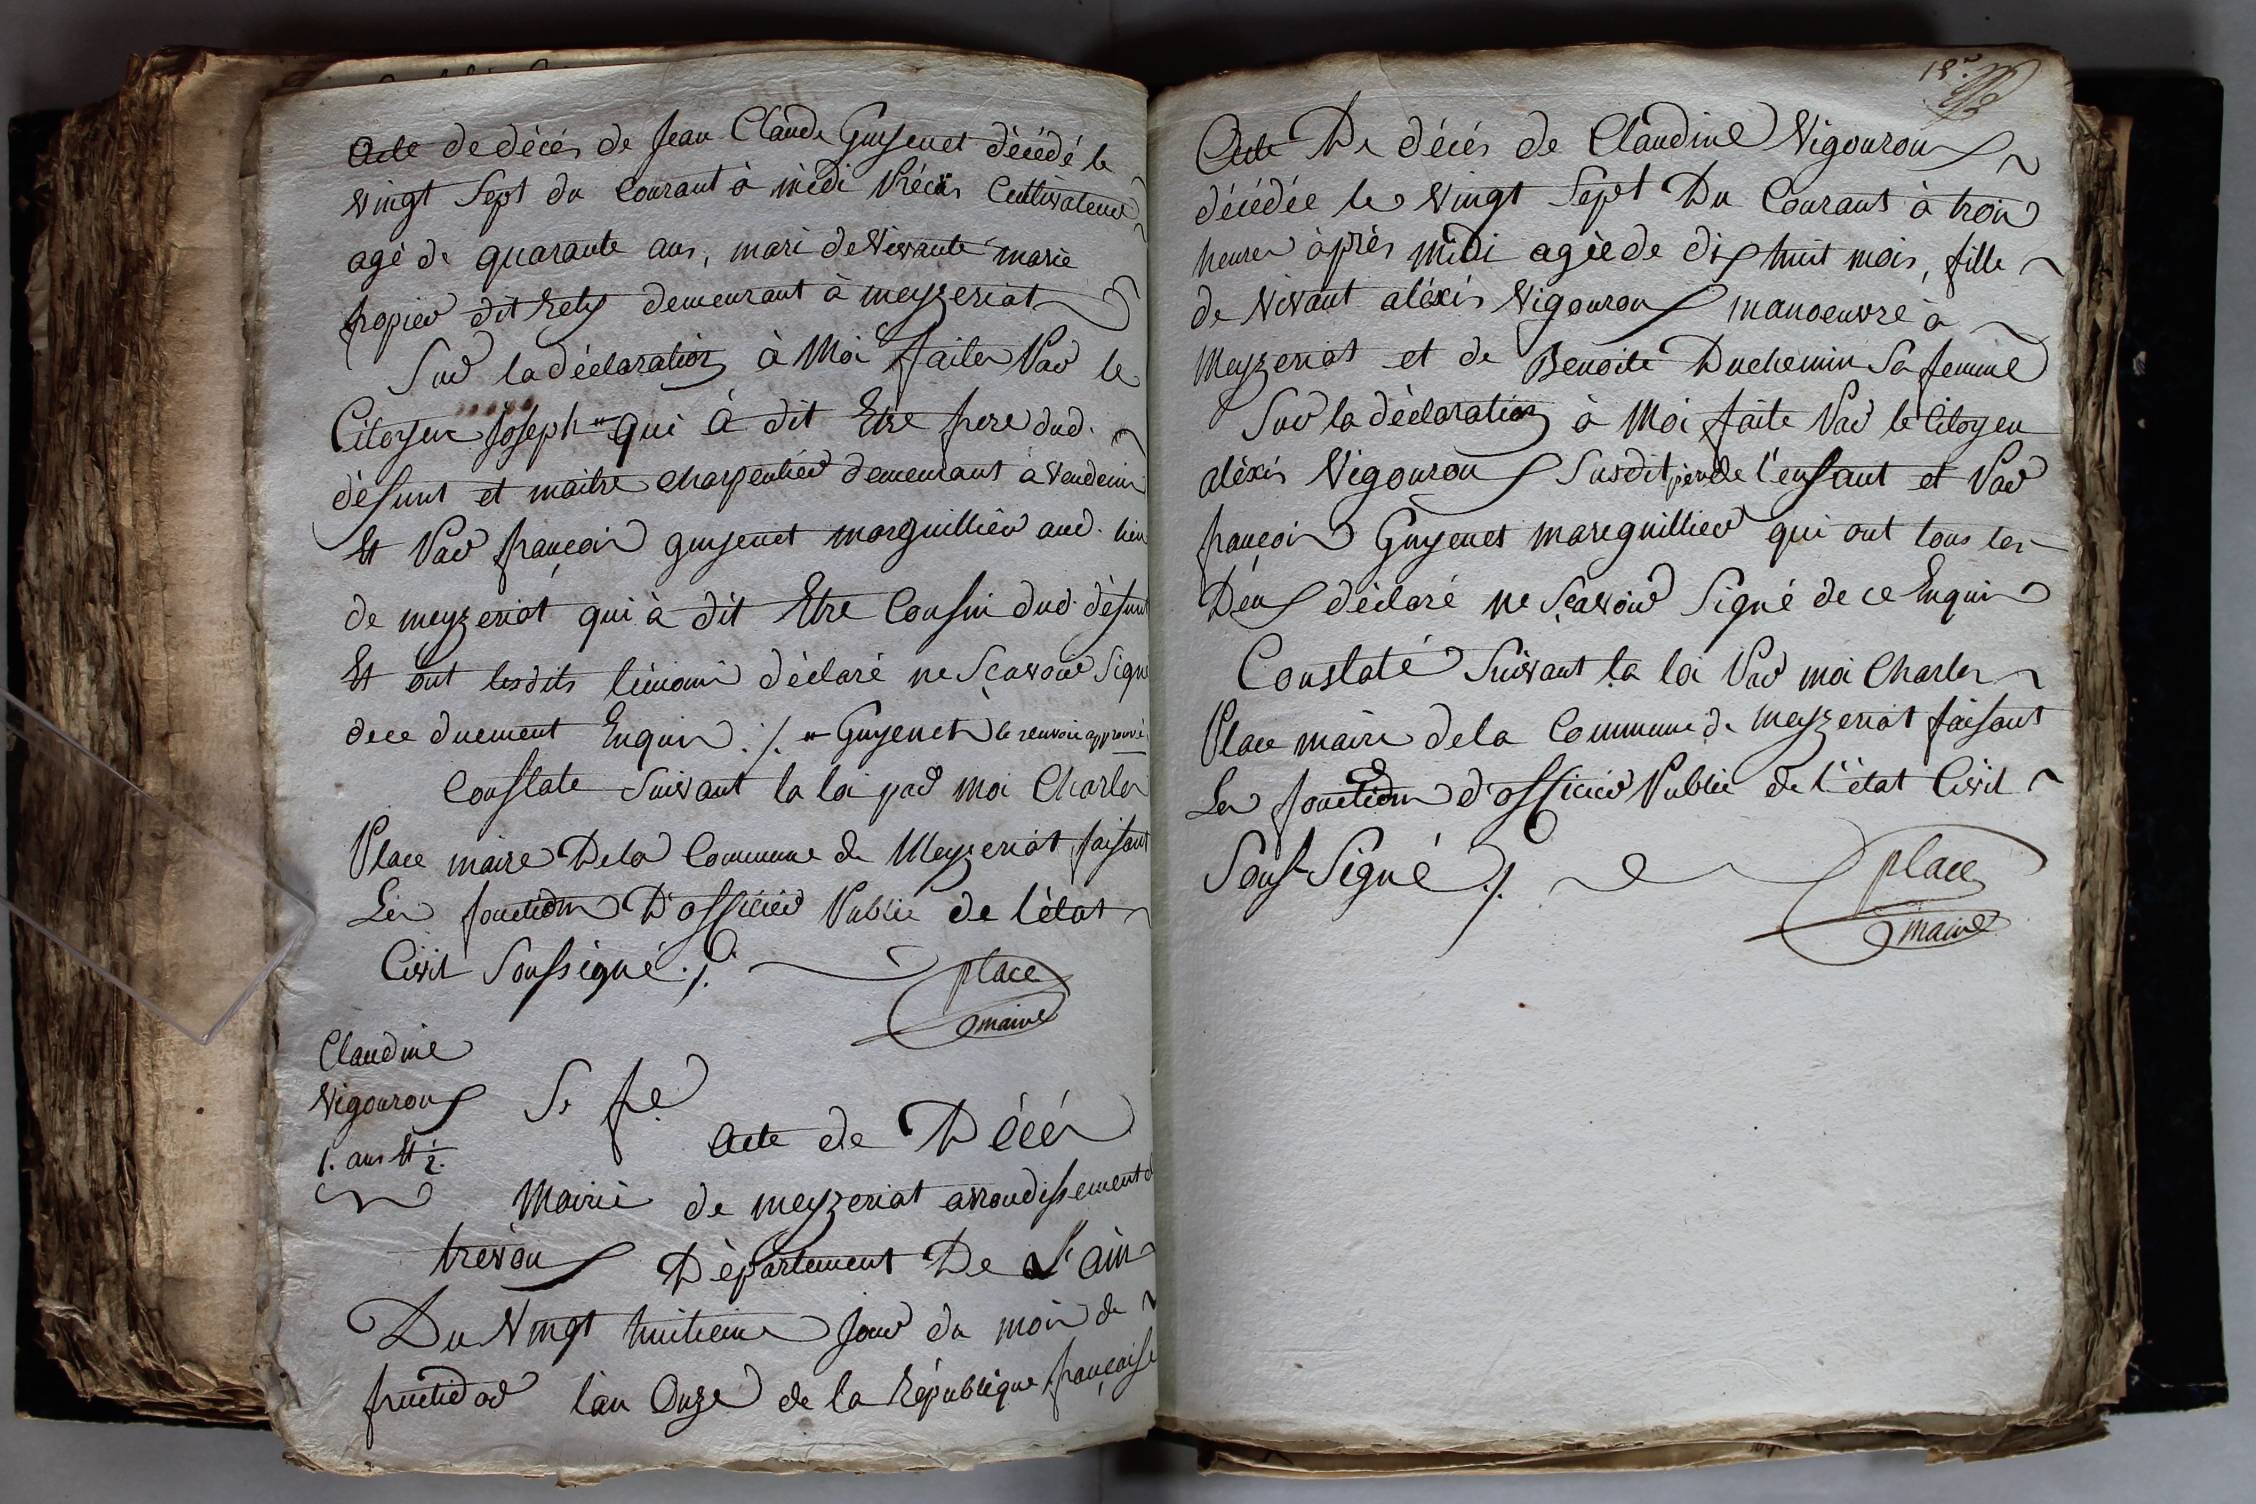 Acte de décés de Jean Claude Guyenet décédé le
Vingt Sept du Courant à midi Précis Cultivateur
agé de quarante ans, mari de Vivante marie
fropier dit Rely demeurant à meyzeriat
Sur la déclaration à Moi faites Par le
Citoyen Joseph qui à dit Etre frere dud.
défunt et maitre charpentier demeurant à Vendeins
Et Par françois guyenet marguillier aud. lieu
de meyzeriat qui à dit Etre Cousin dud. défunt
Et ont lesdits témoins déclaré ne Sçavoir Signé
de ce duement Enquis ./. Guyenet le renvoie approuvé
Constate Suivant la loi par moi Charles
Place maire De la Commune de Meyzeriat faisant
Les fonctions D'officier Public de l'état
Civil Soussigné ./.
place
maire
Claudine
Vigouroux
1. ans Et 1/2.
Acte de Décés
Mairie de meyzeriat arrondissement d
trevoux Département De L'ain
Du Vingt huitieme Jour du mois de
fructidor l'an Onze de la République françaisse
18.e
Acte De décés de Claudine Vigouroux
décédée le Vingt Sept Du Courant à trois
heures après Midi agée de dix huit mois, fille
de Vivant aléxis Vigouroux manoeuvre à
Meyzeriat et de Benoite Duchemin Sa femme
Sur la déclaration à Moi faite Par le Citoyen
aléxis Vigouroux Susdit, père de l'enfant et Par
françois Guyenet mareguillier qui ont tous les
Deux déclaré ne Sçavoir Signé de ce Enquis
Constaté Suivant la loi Par moi Charles
Place maire de la Commune de meyzeriat faisant
Les fonctions d'officier Public de l'état Civil
Sous-Signé ./.
place
maire